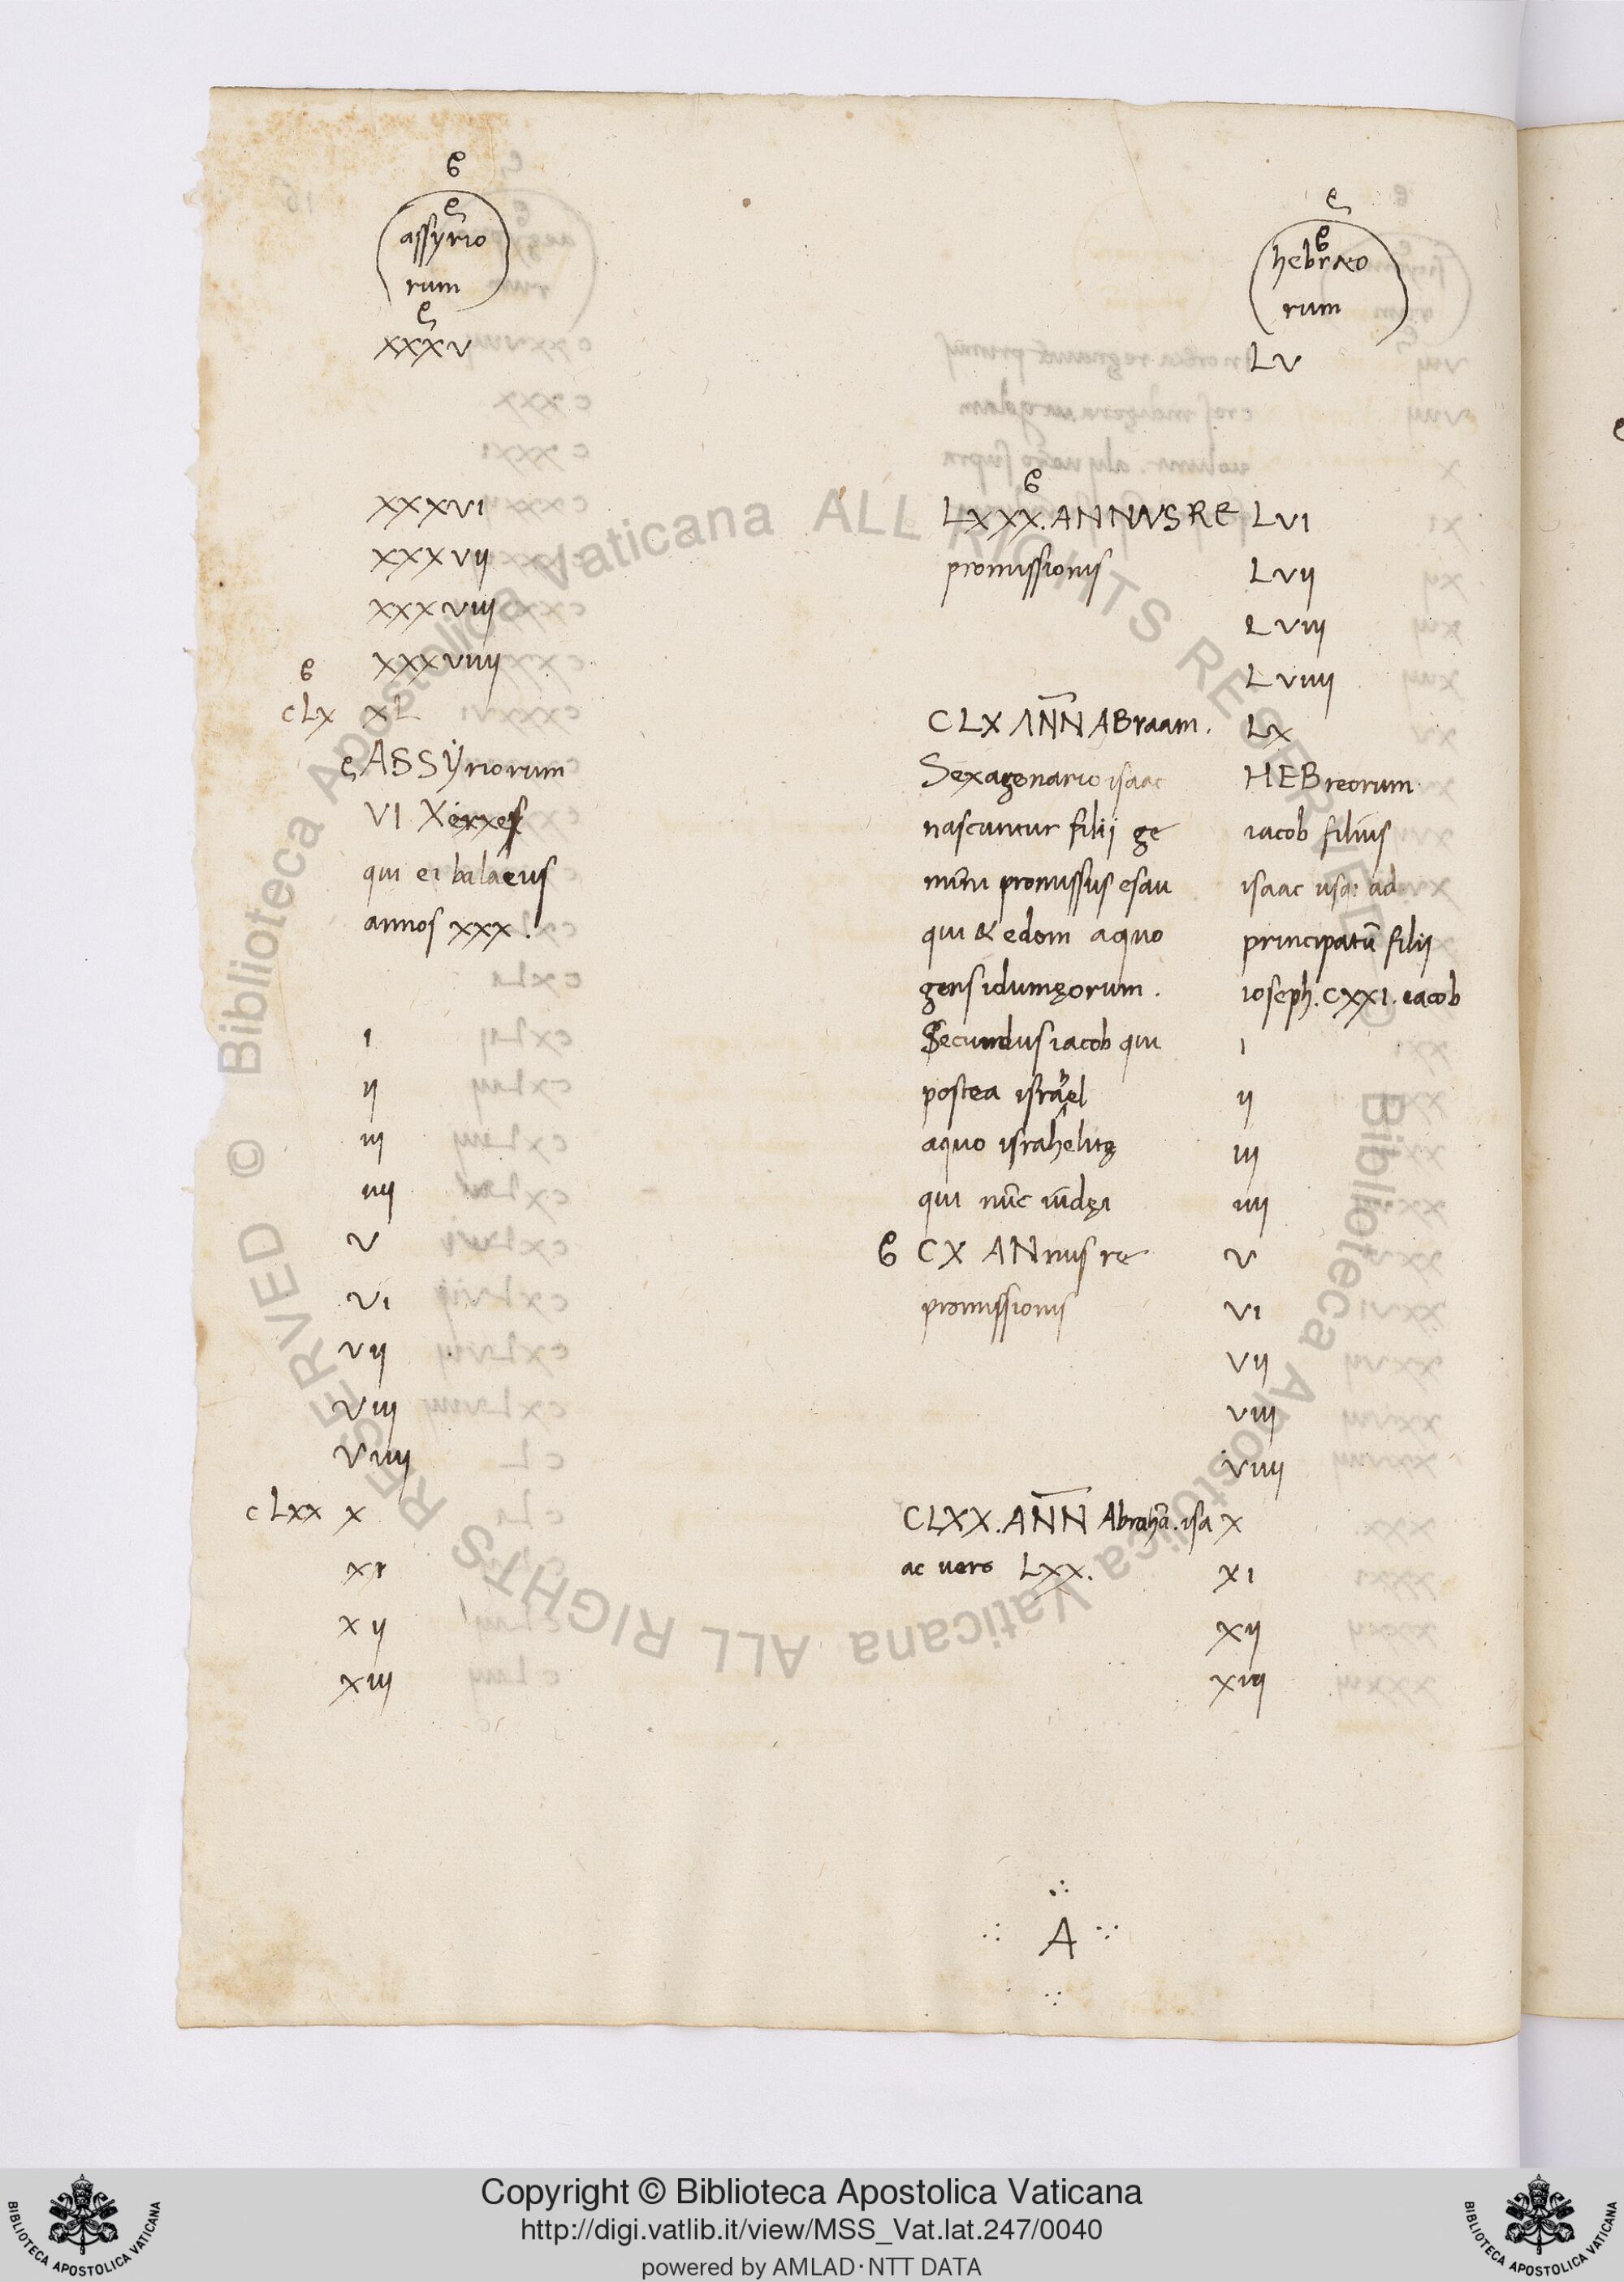 assyrio
rum
xxxv
xxxvi
xxxvii
xxxviii
xxxviiii
CLX XL
ASSYriorum
VI Xerxes
qui et balaeus
annos xxx.
i
ii
iii
iiii
v
vi
vii
viii
viiii
CLXX x
xi
xii
xiii
LXXX. ANNVS RE
promissionis
CLX AÑN ABraam.
Sexagenario isaac
nascuntur filii ge
mini promissus esau
qui & edom aquo
gens idumęorum.
Secundus iacob qui
postea israhel
aquo israhelitę
qui nũc iudęi
CX ANnus re
promissionis
CLXX. AÑN Abrahã. isa
ac vero LXX.
hebraeo
rum
LV
LVI
LVII
LVIII
LVIIII
LX
HEBreorum
iacob filius
isaac usq: ad
principatũ filii
ioseph. CXXI. iacob
i
ii
iii
iiii
v
vi
vii
viii
viiii
x
xi
xii
xiii
A
© Biblioteca Apostolica Vaticana ALL RIGHTS RESERVED
© Biblioteca Apostolica Vaticana ALL RIGHTS RESERVED
Copyright © Biblioteca Apostolica Vaticana
http://digi.vatlib.it/view/MSS_Vat.lat.247/0040
powered by AMLAD·NTT DATA
BIBLIOTECA APOSTOLICA VATICANA
BIBLIOTECA APOSTOLICA VATICANA